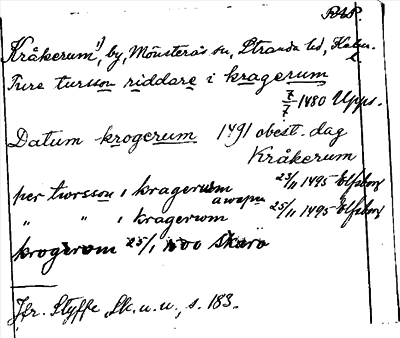 Kråkerum 1), by, Mönsterås sn, Stranda hd, Kalm. l.
Ture tursson riddare i kragerum
7/7 1480 Upps.
Datum krogerum 1491 obest. dag
Kråkerum
per twrsson i kragerwm 23/11 1495 Elfsborg
" " i kragerwm awapn 25/11 1495 Elfsborg
krogerom 25/1 1500 Skara
Jfr. Styffe, Sk. u. u., s. 183.